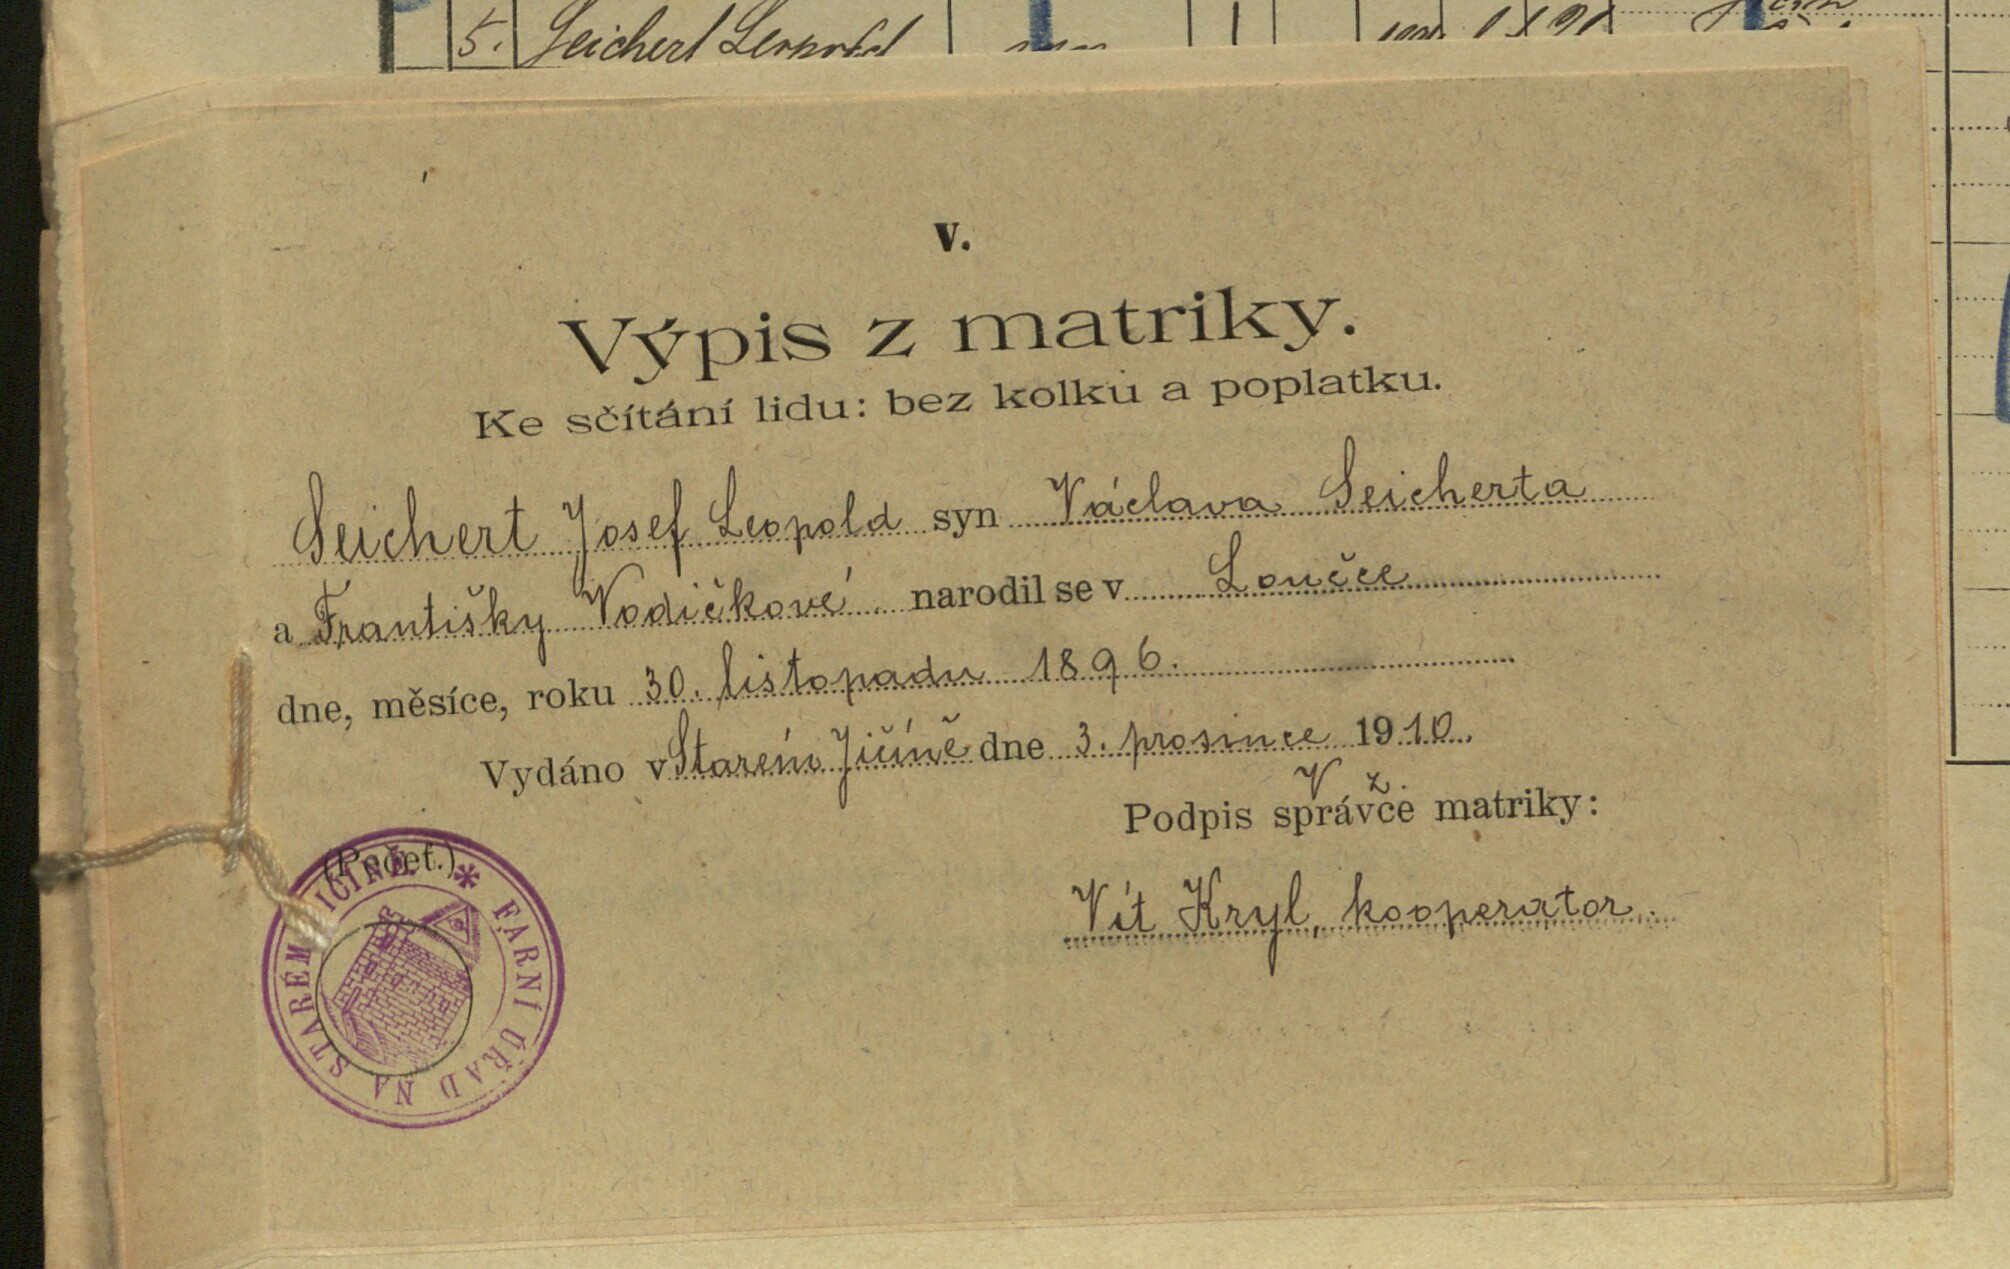 5. Seichert Leopold
V.
Výpis z matriky.
Ke sčítání lidu: bez kolku a poplatku.
Seichert Josef Leopold syn Václava Seicherta
a Františky Vodičkové narodil se v Loučce
dne, měsíce, roku 30. listopadu 1896.
Vydáno v Starém Jičíně dne 3. prosince 1910.
V z.
Podpis správce matriky:
(Pečeť.)
Vít Kryl, kooperator.
* FARNÍ ÚŘAD NA STARÉM JIČÍNĚ